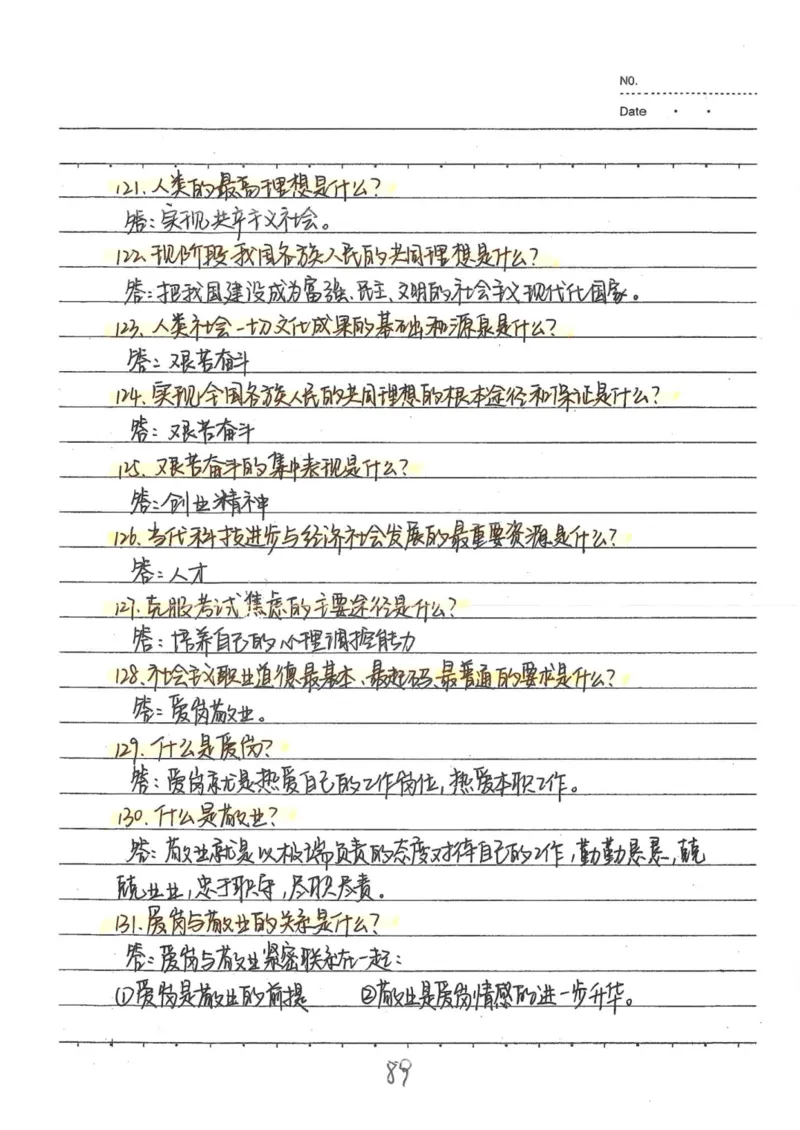 NO.
Date
121.人类的最高理想是什么?
答:实现共产主义社会。
122.现阶段我国各族人民的共同理想是什么?
答:把我国建设成为富强、民主、文明的社会主义现代化国家。
123.人类社会一切文化成果的基础和源泉是什么?
答:艰苦奋斗
124.实现全国各族人民的共同理想的根本途径和保证是什么?
答:艰苦奋斗
125.艰苦奋斗的集中表现是什么?
答:创业精神
126.当代科技进步与经济社会发展的最重要资源是什么?
答:人才
127.克服考试焦虑的主要途径是什么?
答:培养自己的心理调控能力
128.社会主义职业道德最基本、最起码、最普通的要求是什么?
答:爱岗敬业。
129.什么是爱岗?
答:爱岗就是热爱自己的工作岗位,热爱本职工作。
130.什么是敬业?
答:敬业就是以极端负责的态度对待自己的工作,勤勤恳恳,兢
兢业业,忠于职守,尽职尽责。
131.爱岗与敬业的关系是什么?
答:爱岗与敬业紧密联系在一起:
①爱岗是敬业的前提 ②敬业是爱岗情感的进一步升华。
89